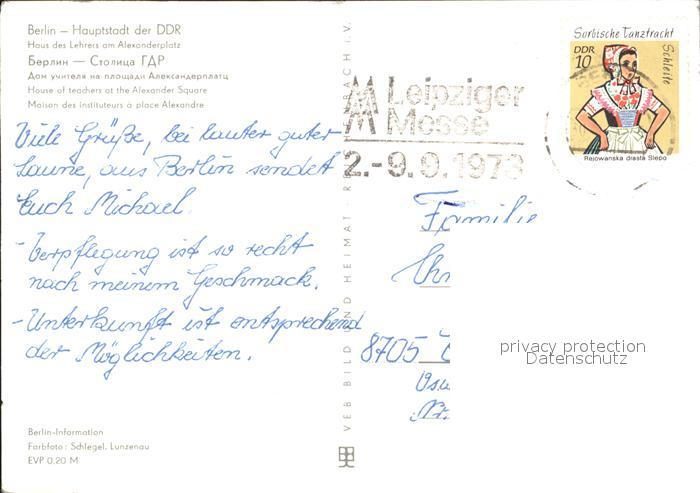 Berlin – Hauptstadt der DDR
Haus des Lehrers am Alexanderplatz
Берлин — Столица ГДР
Дом учителя на площади Александерплатц
House of teachers at the Alexander Square
Maison des instituteurs à place Alexandre
Viele Grüße, bei lauter guter
Laune, aus Berlin sendet
Euch Michael.
- Verpflegung ist so recht
nach meinem Geschmack.
- Unterkunft ist entsprechend
der Möglichkeiten.
Berlin-Information
Farbfoto: Schlegel, Lunzenau
EVP 0,20 M
VEB BILD UND HEIMAT · I.V.
Leipziger
Messe
2.-9.9.1973
Sorbische Tanztracht
Schleife
DDR
10
Rejowanska drasta Slepo
Familie
8705
privacy protection
Datenschutz